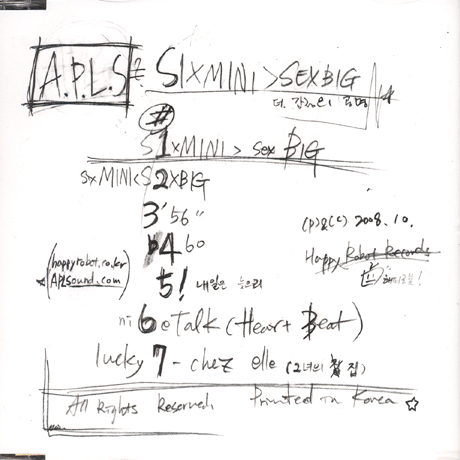 A.P.L.S SIXMINI>SEXBIG
#
S1xMINI> sex BIG
SIXMINI<S2XBIG
3'56"
(P)&(C) 2008.10.
b4 60
Happy Robot Records
(happyrobot.co.kr
APLSound.com)
해피로봇!
5! 내일은 늦으리
ni6eTalk (Heart Beat)
lucky 7 - chez elle (그녀의 집)
All Rights Reserved. Printed in Korea